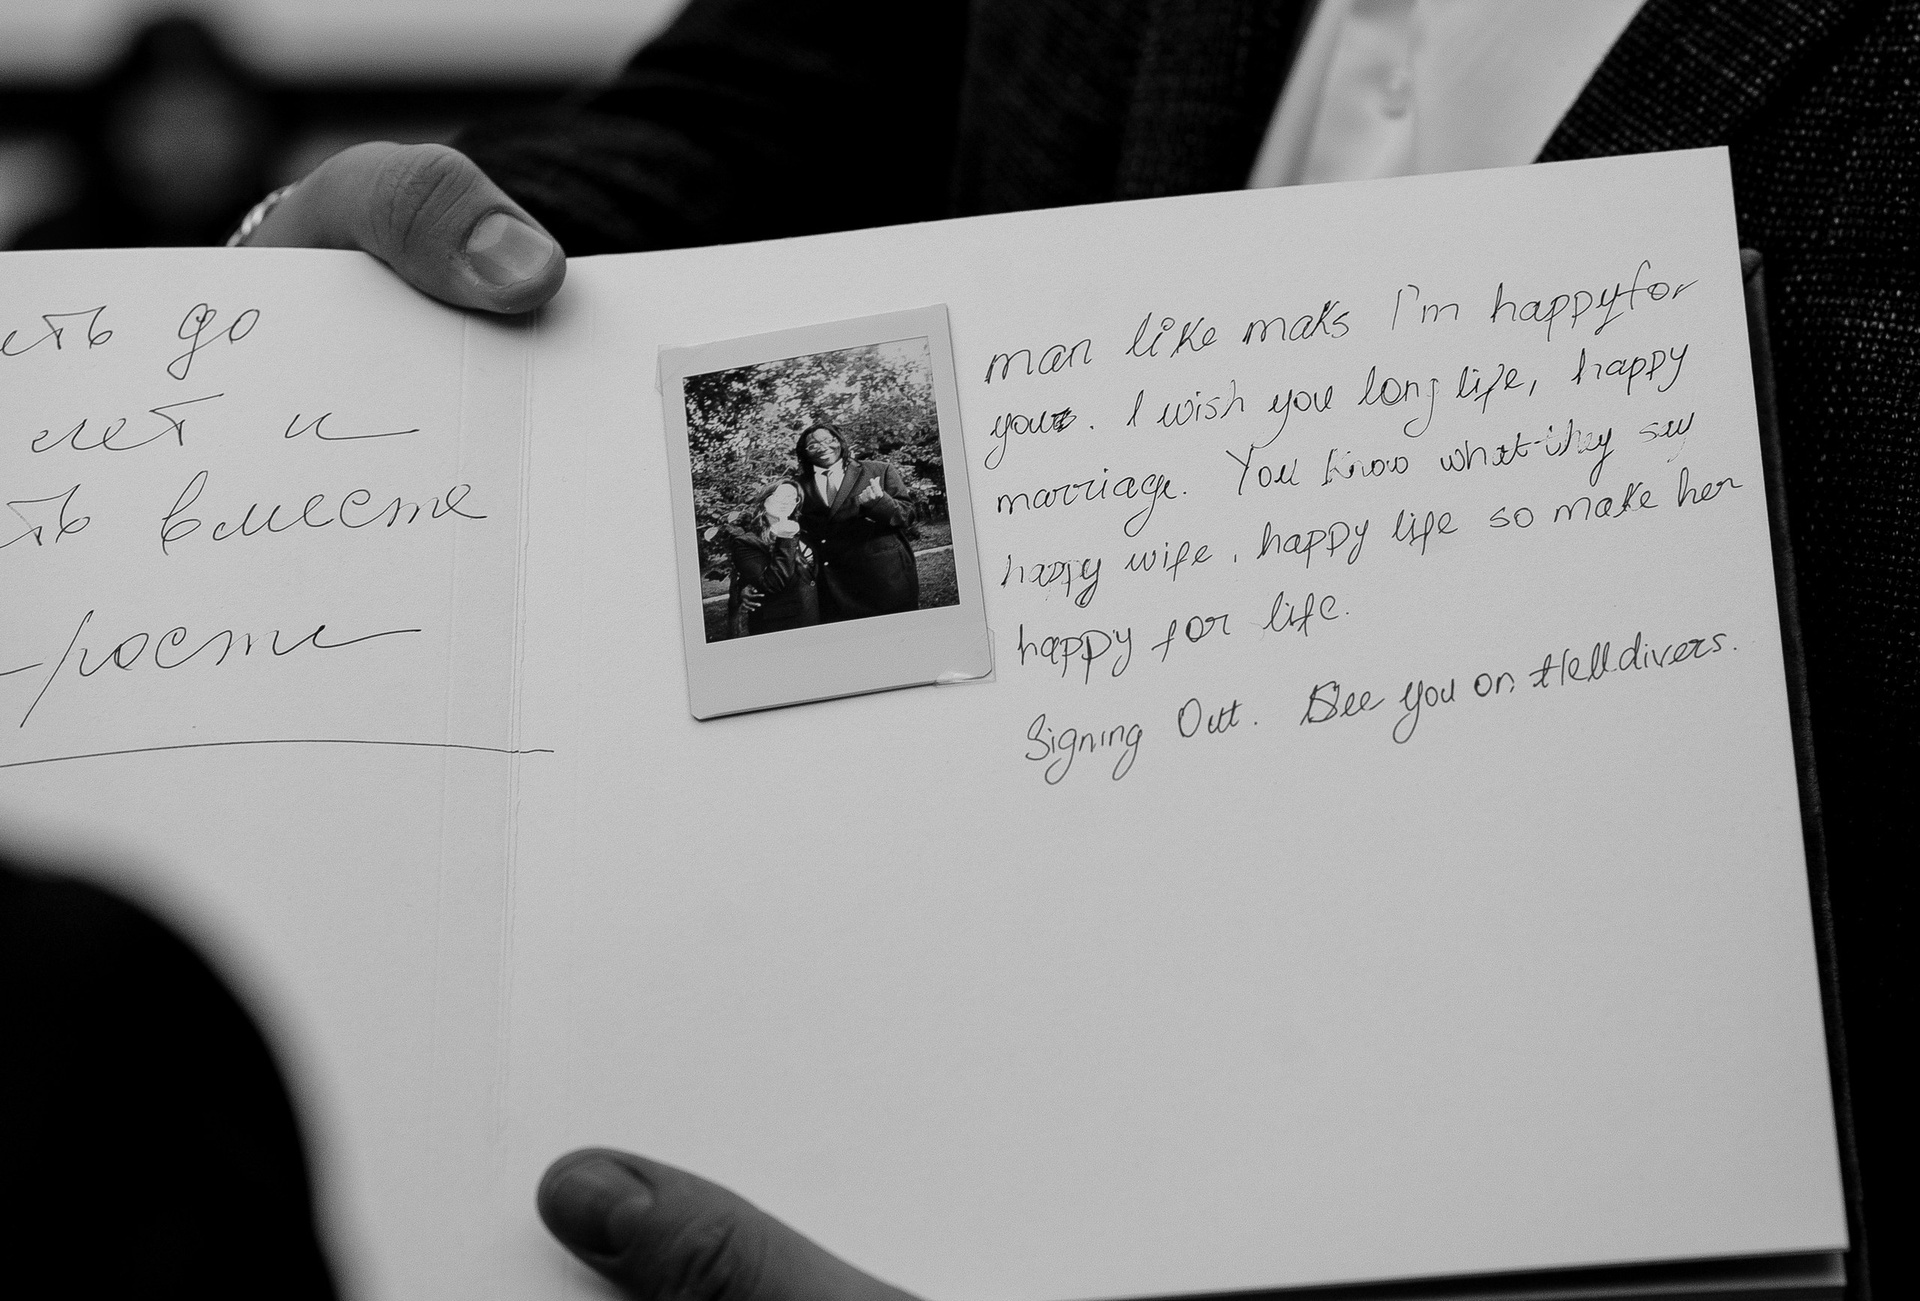 еть до
лет и
ть вместе
рости
man like maks I'm happy for
you. I wish you long life, happy
marriage. You know what they say
happy wife, happy life so make her
happy for life.
Signing Out. See you on Helldivers.